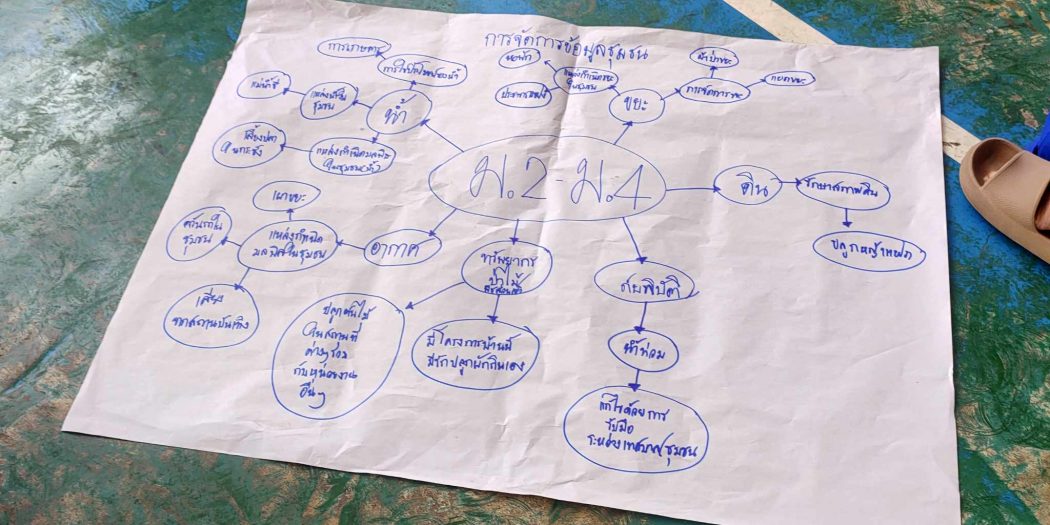 การจัดการข้อมูลชุมชน
ม.2 - ม.4
น้ำ
การใช้ประโยชน์ของน้ำ
การเกษตร
แหล่งน้ำใน
ชุมชน
แหล่งกำเนิดมลพิษ
ในชุมชน(น้ำ)
เลี้ยงปลา
ในกระชัง
ขยะ
แหล่งกำเนิดขยะ
ในชุมชน
หอพัก
การจัดการขยะ
แยกขยะ
ดิน
รักษาสภาพดิน
ปลูกหญ้าแฝก
อากาศ
แหล่งกำเนิด
มลพิษในชุมชน
เผาขยะ
ควันรถใน
ชุมชน
เสียง
จากสถานบันเทิง
ทรัพยากร
ป่าไม้
ปลูกต้นไม้
ในสถานที่
ต่างๆร่วม
กับหน่วยงาน
อื่นๆ
มีโครงการบ้านนี้
มีรักปลูกผักกินเอง
ภัยพิบัติ
น้ำท่วม
แก้ไขด้วยการ
รับมือ
ระหว่างเทศบาล/ชุมชน